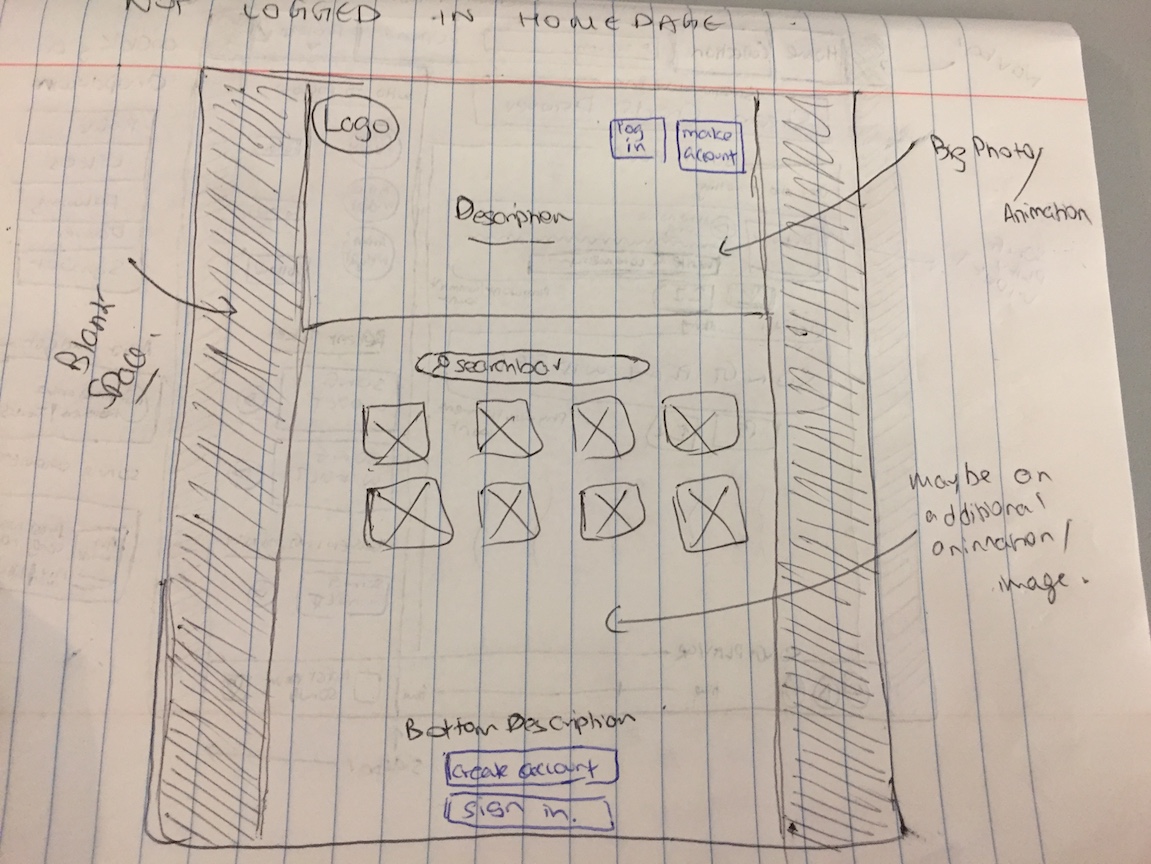 NOT LOGGED IN HOMEPAGE
Logo
log
in
make
account
Description
Big Photo/
Animation
Blank
Space.
searchbar
maybe an
additional
animation/
image.
Bottom Description
create account
sign in.